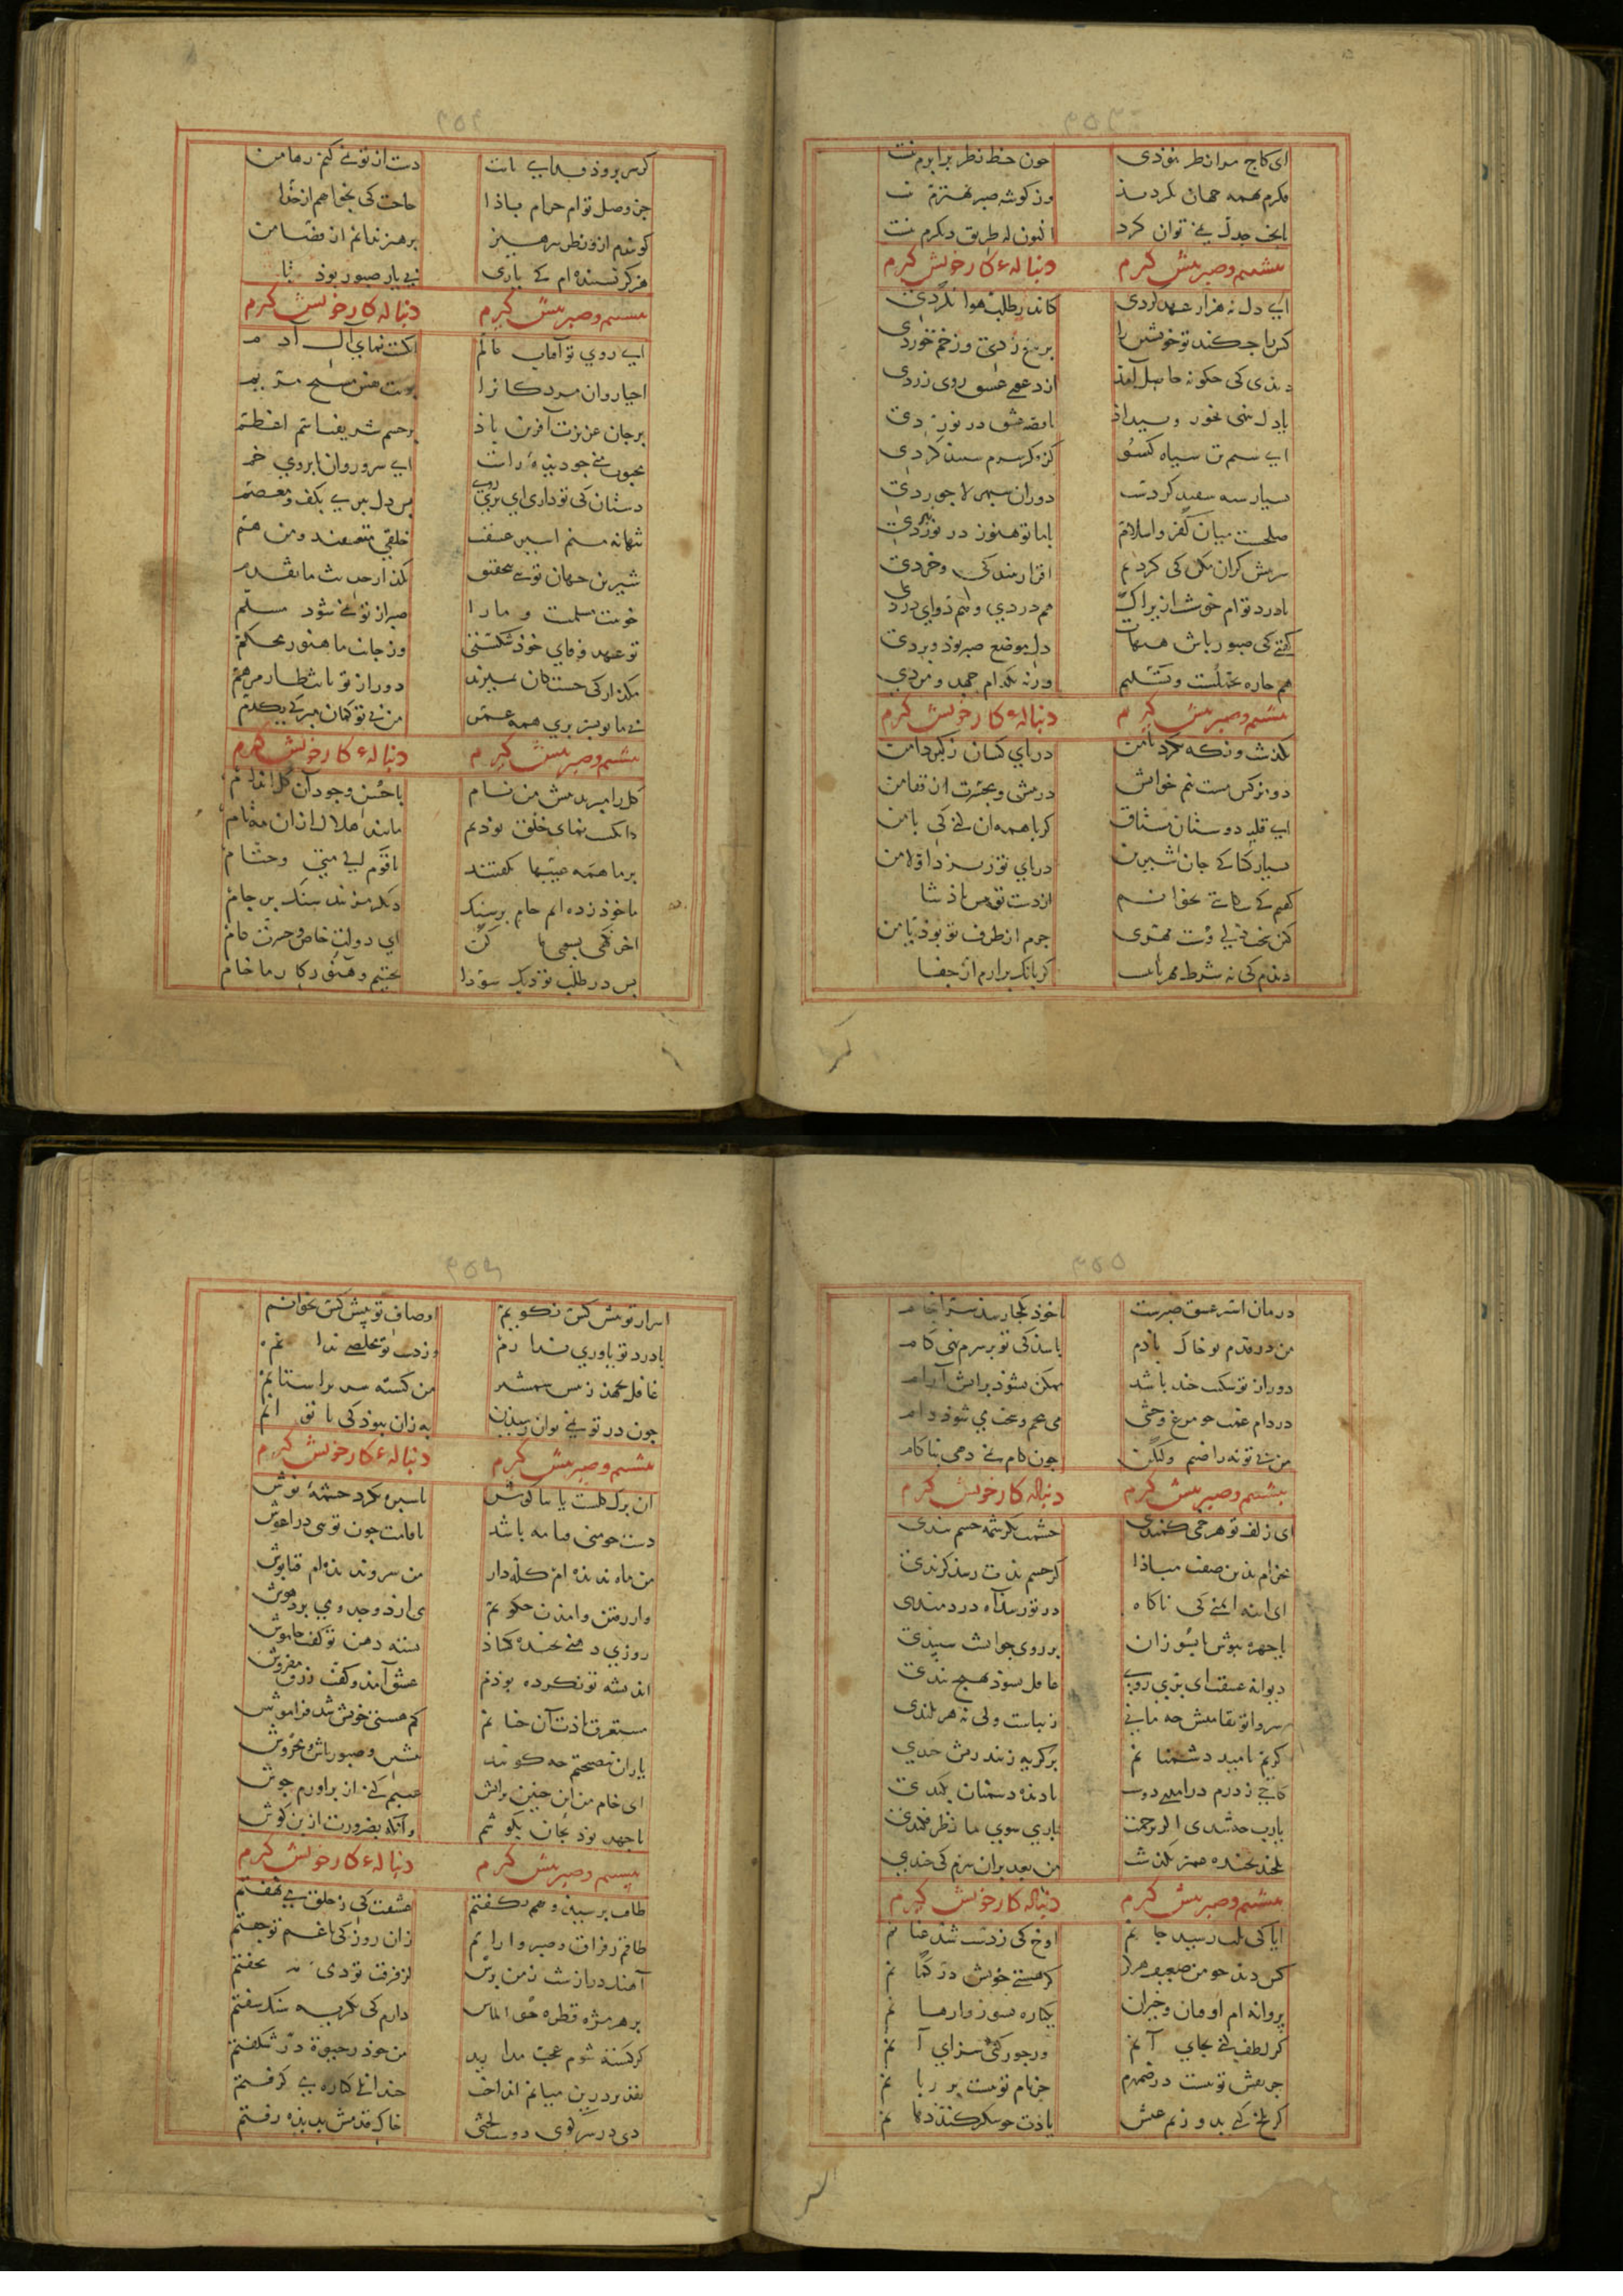 ای کاج مرا نظر نبوذی چون حظ نظر برابرم نیست
فکرم بهمه جهان بکردیذ وز گوشه صبر بهترم نیست
با بخت جدل نمی توان کرد اکنون که طریق دیکرم نیست
بنشینم و صبر پیش گیرم دنبالهء کار خویش گیرم
ای دل نه هزار عهد کردی کاندر طلب هوا نکردی
کس را چه کنذ تو خویشتن را بر تیغ زدی و زخم خوردی
دیذی کی چکونه حاصل آمذ از دعوی عشق روی زردی
یا دل بنهی بجور و بیداذ یا قصه عشق در نوردی
ای سیم تن سیاه کیسو کز فکر سرم سپید کردی
بسیار سیه سپید کردست دوران سپهر لاجوردی
صلحست میان کفر و اسلام با ما تو هنوز در نبردی
سر بیش گران مکن کی کردیم اقرار ببندکی و خردی
با درد توام خوشست ازیراک هم دردی و هم دوای دردی
کفتی کی صبور باش هیهات دل موضع صبر بوذ و بردی
هم چاره تحملست و تسلیم ورنه بکدام جهد و مردی
بنشینم و صبر پیش گیرم دنبالهء کار خویش گیرم
بکذشت و نکه نکرد با من در پای کشان ز کبر دامن
دو نرکس مست نیم خوابش در پیش و بحسرت از قفا من
ای قبله دوستان مشتاق کر با همه آن کنی کی با من
بسیار کسا کی جان شیرین در پای تو ریزد اولا من
کفتم کی شکایتی بخوانم از دست تو پیش پاذشا من
کین سخت دلی و سست مهری جرم از طرف تو بوذ یا من
دیدم کی نه شرط مهربانیست کر بانک برارم از جفا
کر سر بروذ فدای پایت دست از تو نمی کنم رها من
جز وصل توام حرام باذا حاجت کی بخواهم از خذا
کویندم ازو نظر بپرهیز پرهیز ندانم از قضا من
هرکز نشنیده ام کی یاری بی یار صبور بوذ تا
بنشینم و صبر پیش گیرم دنباله کار خویش گیرم
ای روی تو آفتاب عالم انکشت نمای آل ادم
احیاء روان مردکانرا بویت نفس مسیح مریم
بر جان عزیزت آفرین باذ بر جسم شریفت اسم اعظم
محبوب منی چو دیذه راست ای سرو روان ابروی خم
دستان کی تو داری ای پری روی بس دل ببری بکف و معصم
تنها نه منم اسیر عشقت خلقی متعشقند و من هم
شیرین جهان توی بتحقیق بکذار حدیث ما تقدم
خوبیت مسلمست و مارا صبر از تو نمی شود مسلم
تو عهد وفای خود شکستی وز جانب ما هنوز محکم
مکذار کی خستکان بمیرند دور از تو بانتظار مرهم
بی ما تو بسر بری همه عمر من بی تو کمان مبر کی یکدم
بنشینم و صبر پیش گیرم دنبالهء کار خویش گیرم
کل را مبریذ پیش من نام با حسن وجود آن کل اندام
انکشت نمای خلق بوذیم مانند هلال ازان مه تام
بر ما همه عیبها بکفتند یا قوم الی متی و حتام
ما خوذ زده ایم جام بر سنک دیکر مزنید سنک بر جام
آخر نکهی بسوی ما کن ای دولت خاص و حسرت عام
بس در طلب تو دیک سودا پختیم و هنوز کار ما خام
درمان اسیر عشق صبرست تا خوذ بکجا رسذ سرانجام
من در قدم تو خاک باذم باشذ کی تو بر سرم نهی کام
دور از تو شکیب چند باشد ممکن نشوذ بر اتش آرام
در دام غمت چو مرغ وحشی می پیچم و سخت می شوذ دام
من بی تو نه راضیم ولیکن چون کام نمی دهی بناکام
بنشینم و صبر پیش گیرم دنباله کار خویش گیرم
ای زلف تو هر خمی کمندی چشمت بکرشمه چشم بندی
مخرام بذین صفت مباذا کز چشم بدت رسذ کزندی
ای آینه ایمنی کی ناکاه در تو رسد آه دردمندی
یا چهره بپوش یا بسوزان بر روی چو آتشت سپندی
دیوانه عشقت ای پری روی عاقل نشوذ بهیچ بندی
ای سرو بقامتش چه مانی زیباست ولی نه هر بلندی
کریم بامید و دشمنانم بر کریه زنند ریش خندی
کاجی ز درم درامدی دوست تا دیذه دشمنان بکندی
یا رب چه شدی اکر برحمت باری سوی ما نظر فکندی
یکچند بخیره عمر بکذشت من بعد بر ان سرم کی چندی
بنشینم و صبر پیش گیرم دنباله کار خویش گیرم
ایا کی بلب رسید جانم آوخ کی ز دست شد عنانم
کس دید چو من ضعیف هرکز کز هستی خویش در کمانم
پروانه ام اوفتان و خیزان یکباره بسوز وارهانم
کر لطف کنی بجای آنم ور جور کنی سزای آنم
جز نقش تو نیست در ضمیرم جز نام تو نیست بر زبانم
کر تلخ کنی بدوریم عیش یاذت چو شکر کند دهانم
اسرار تو پیش کس نکویم اوصاف تو پیش کس نخوانم
با درد تو یاوری ندارم وز دست تو مخلصی ندانم
عاقل بجهذ ز پیش شمشیر من کشته سر بر آستانم
چون در تو نمی توان رسیذن به زان نبوذ کی تا توانم
بنشینم و صبر پیش گیرم دنبالهء کار خویش گیرم
آن برک کلست یا بناکوش یا سبزه بکرد چشمه نوش
دست چو منی قیامه باشد با قامت چون توی در اغوش
من ماه ندیذه ام کله دار من سرو ندیذه ام قباپوش
وز رفتن و آمذن چکویم می ارذ وجد و می برد هوش
روزی دهنی بخنده بکشاذ پسته دهن تو کفت خاموش
اندیشه توبه کرده بوذم عشق آمذ و کفت زرق مفروش
مستغرق یاذت آن چنانم کم هستی خویش شد فراموش
یاران نصیحتم چه کویند بنشین و صبور باش و مخروش
ای خام من این چنین بر آتش عیبم مکن از براورم جوش
تا جهد بوذ بجان بکوشم و آنکه بضرورت از بن کوش
بنشینم و صبر پیش گیرم دنبالهء کار خویش گیرم
طاقت برسیذ و هم بکفتم عشقت کی ز خلق می نهفتم
طاقم ز فراق و صبر و ارام زان روز کی با غم تو جفتم
آهنک دراز شب ز من پرس کز فرقت تو دمی نخفتم
بر هر مژه قطره چو الماس دارم کی بکریه سنک سفتم
کر کشته شوم عجب مدارید من خوذ ز حیوة در شکفتم
تقدیر درین میانم انداخت چندانک کناره می کرفتم
دی بر سر کوی دوست لختی خاک قدمش بدیده رفتم